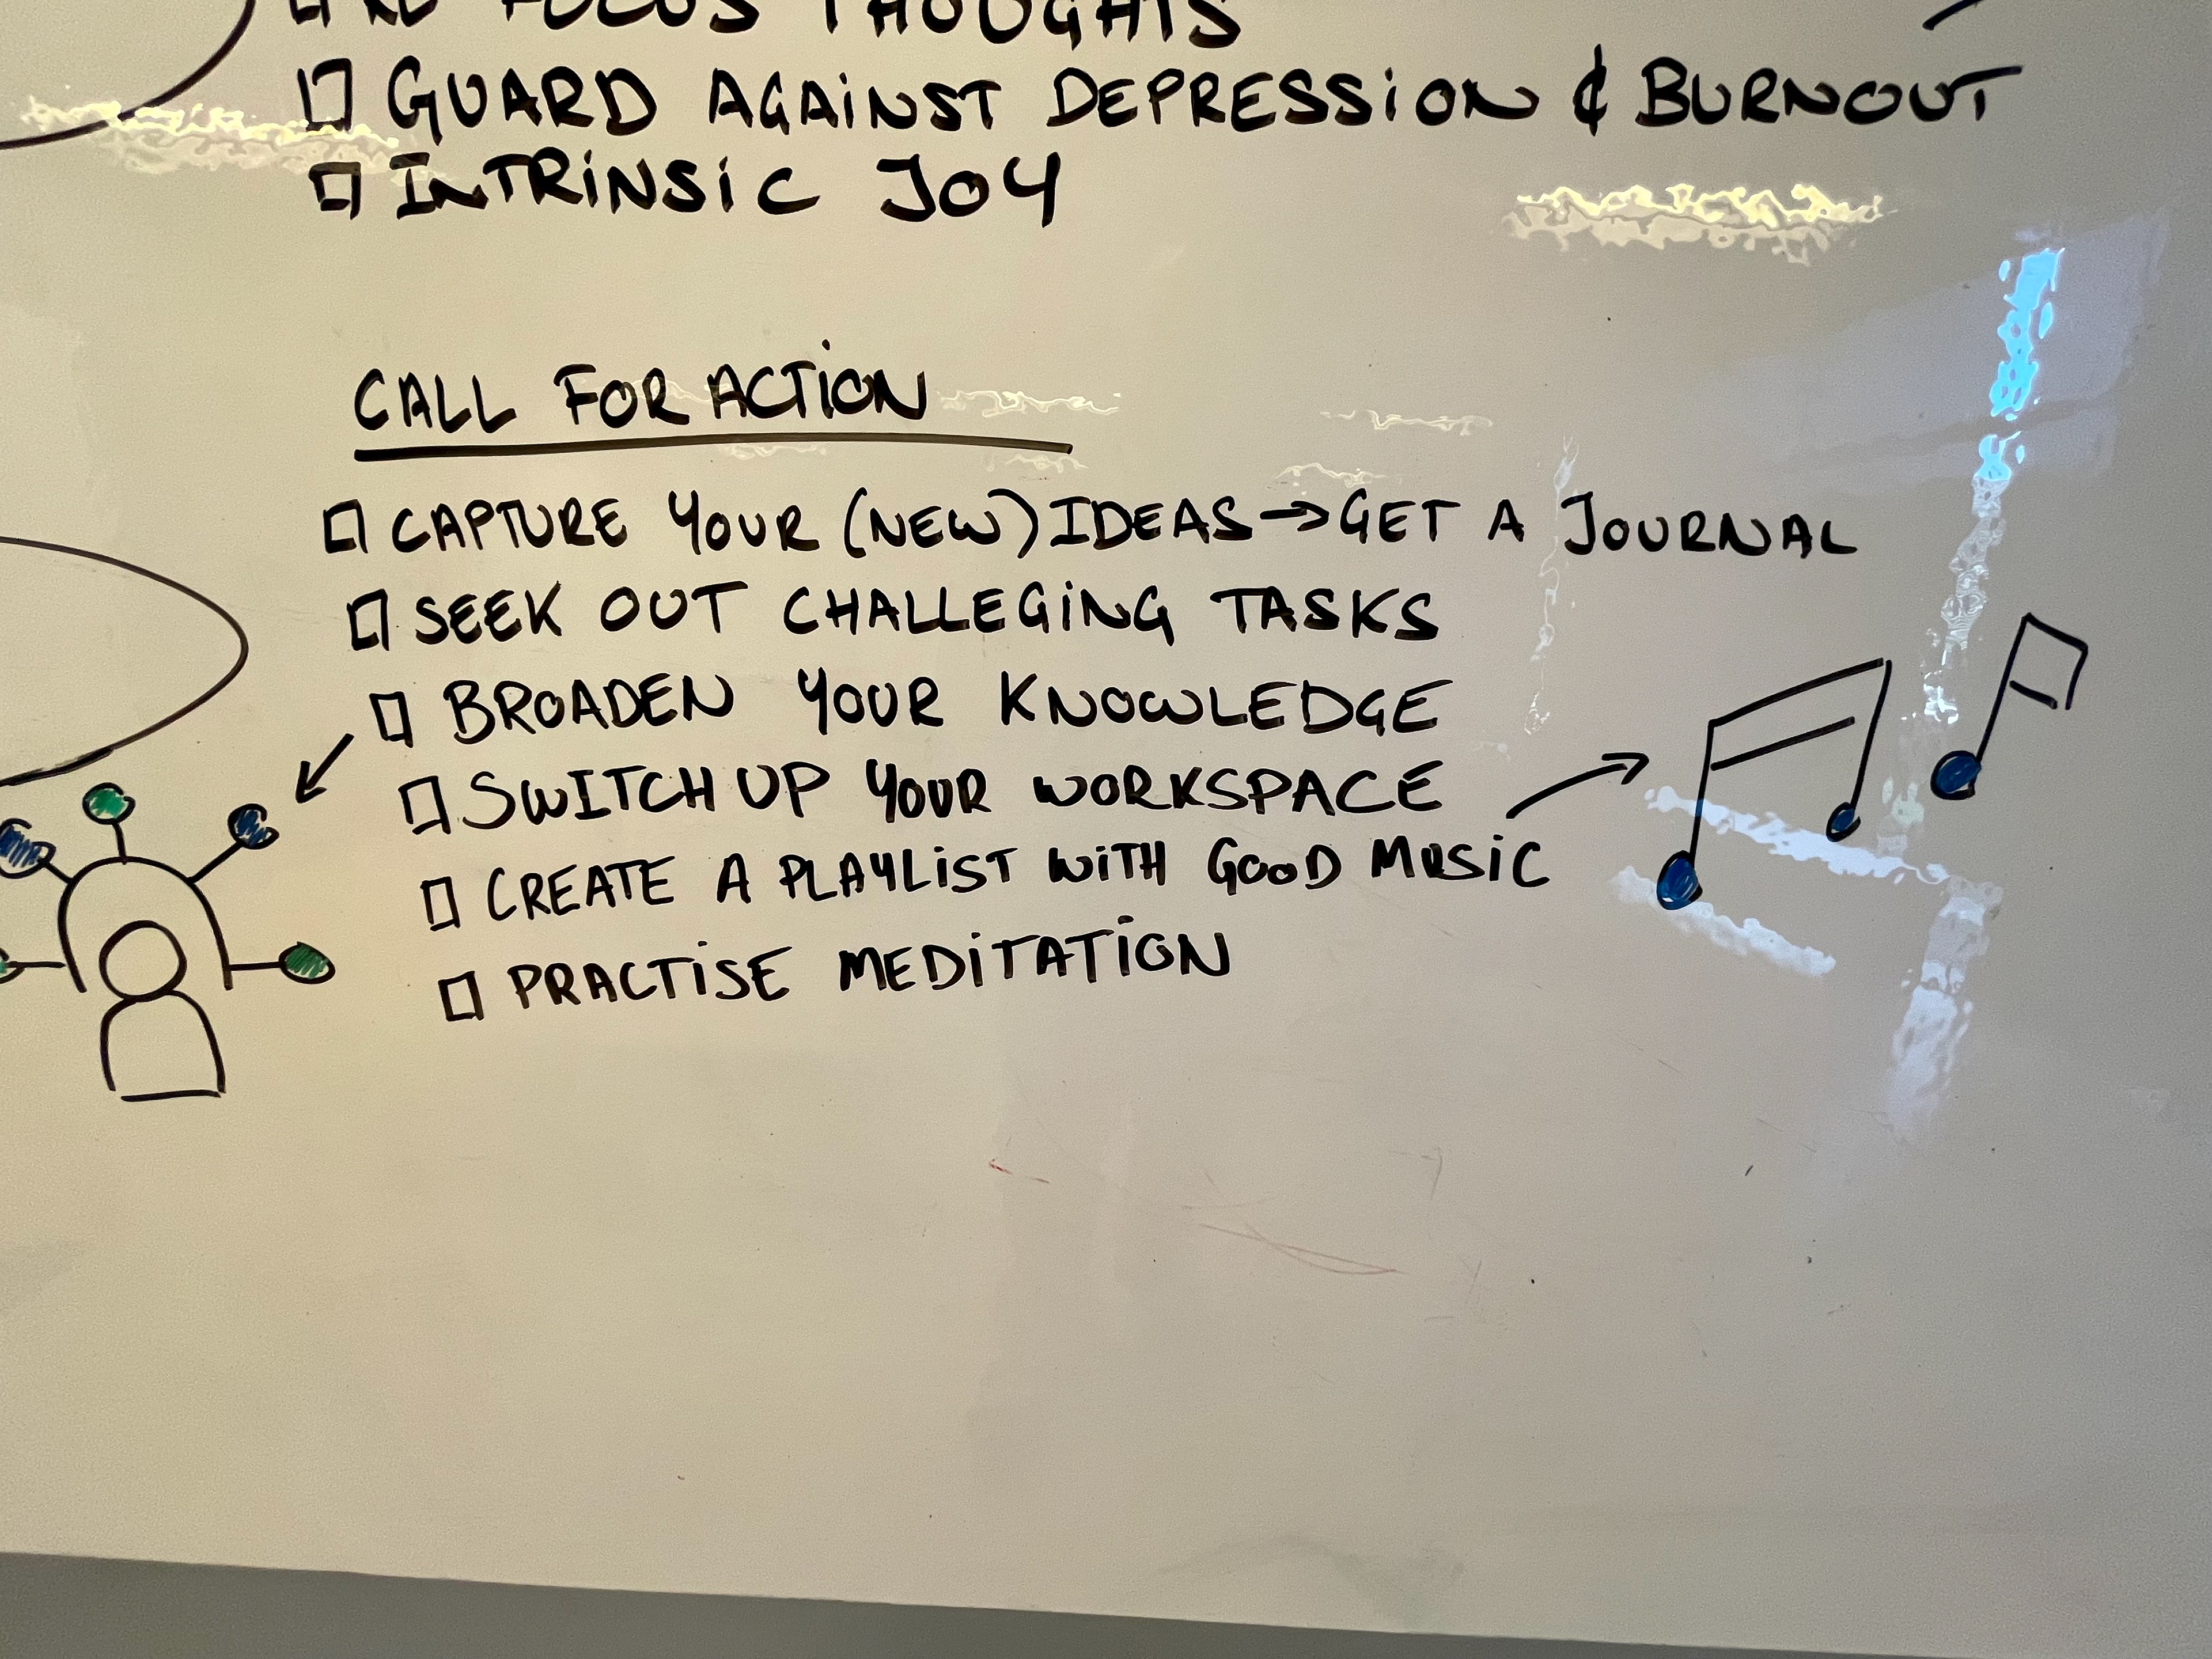 RE FOCUS THOUGHTS
GUARD AGAINST DEPRESSION & BURNOUT
INTRINSIC JOY
CALL FOR ACTION
CAPTURE YOUR (NEW) IDEAS → GET A JOURNAL
SEEK OUT CHALLEGING TASKS
BROADEN YOUR KNOWLEDGE
SWITCH UP YOUR WORKSPACE
CREATE A PLAYLIST WITH GOOD MUSIC
PRACTISE MEDITATION